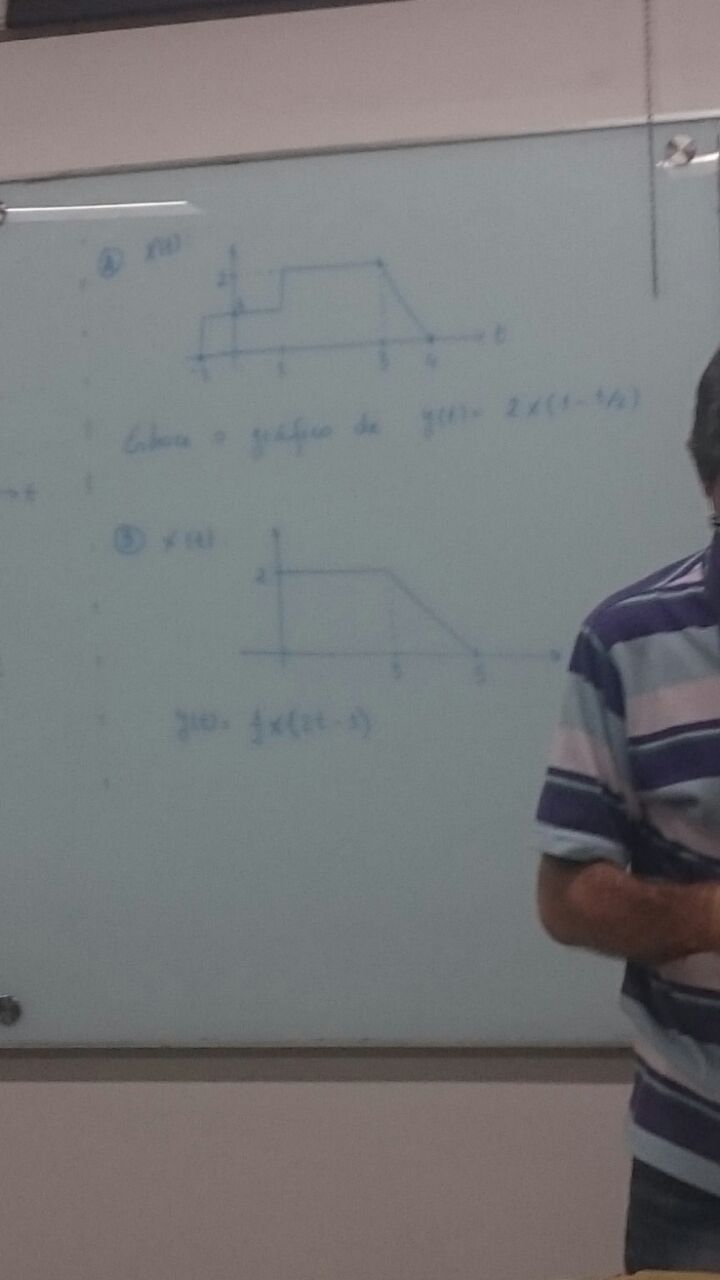 A x(t)
2
1
-1 1 3 4 t
Esboce o gráfico de y(t) = 2x(1-t/2)
→ t
B x(t)
2
3 5
y(t) = ½x(2t-3)